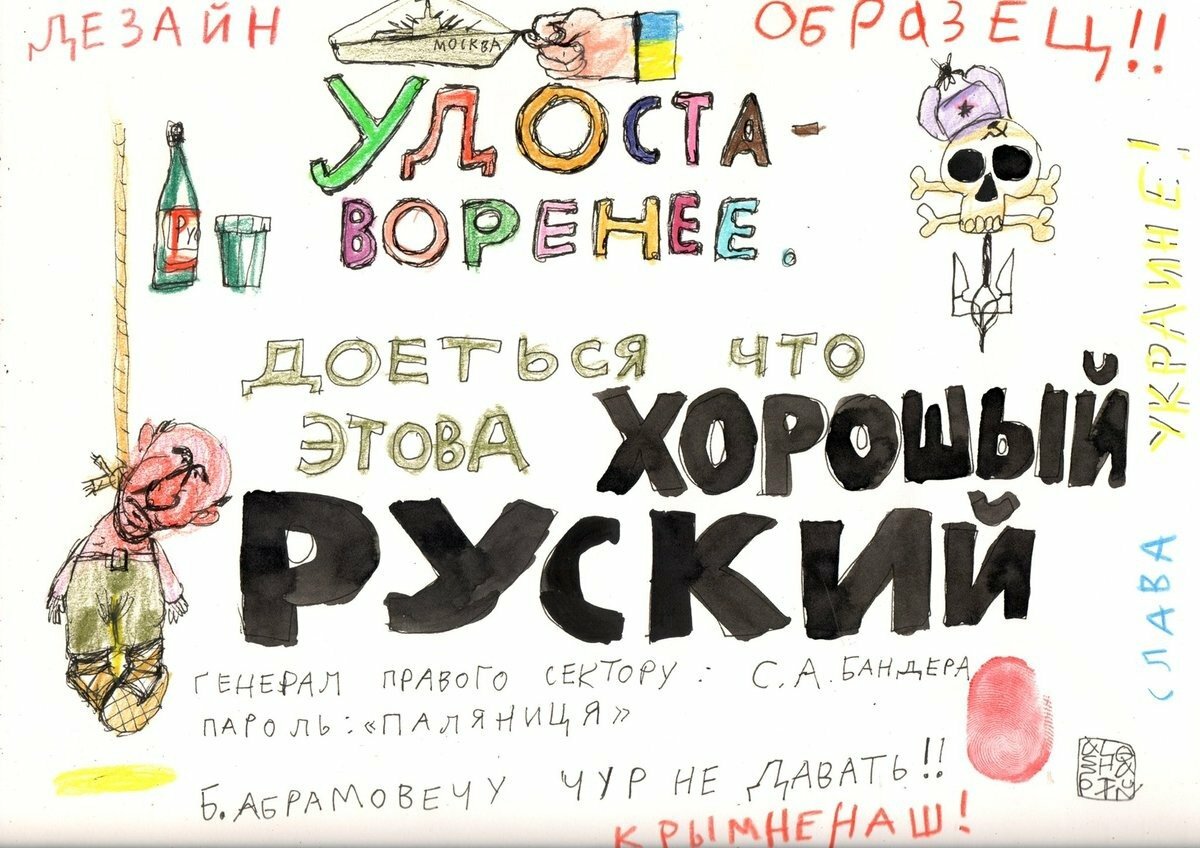 ДЕЗАЙН
ОБРАЗЕЦ!!
МОСКВА
УДОСТА-
ВОРЕНЕЕ.
РУ
ДОЕТЬСЯ ЧТО
ЭТОВА ХОРОШЫЙ
РУСКИЙ
СЛАВА УКРАИНЕ!
ГЕНЕРАЛ ПРАВОГО СЕКТОРУ: С.А.БАНДЕРА
ПАРОЛЬ:«ПАЛЯНИЦЯ»
Б.АБРАМОВЕЧУ ЧУР НЕ ДАВАТЬ!!
КРЫМНЕНАШ!